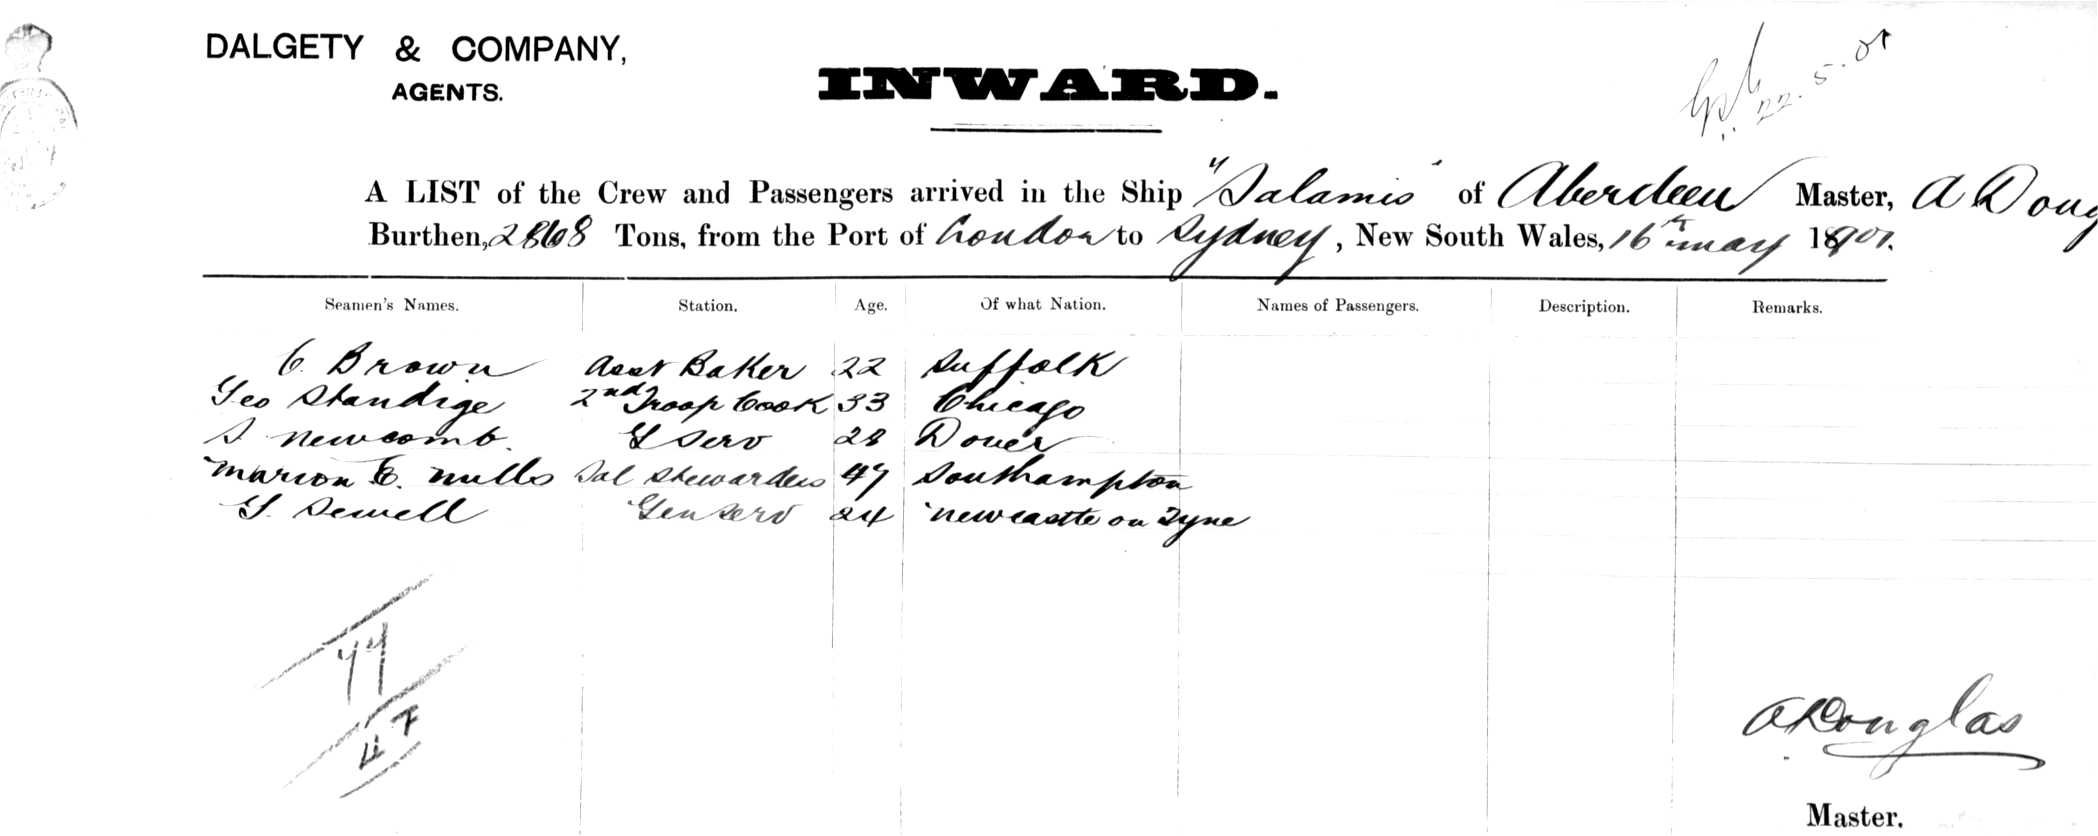 DALGETY & COMPANY,
AGENTS.
INWARD.
22.5.01
A LIST of the Crew and Passengers arrived in the Ship "Salamis" of Aberdeen Master, A Doug
Burthen, 2868 Tons, from the Port of London to Sydney, New South Wales, 16th May 1901.
Seamen's Names. Station. Age. Of what Nation. Names of Passengers. Description. Remarks.
C. Brown Asst Baker 22 Suffolk
Geo Standige 2nd Troop Cook 33 Chicago
S Newcomb. G Serv 28 Dover
Marion E. Mills Sal Stewardess 47 Southampton
G. Sewell Gen Serv 24 Newcastle on Tyne
44
47
A Douglas
Master.